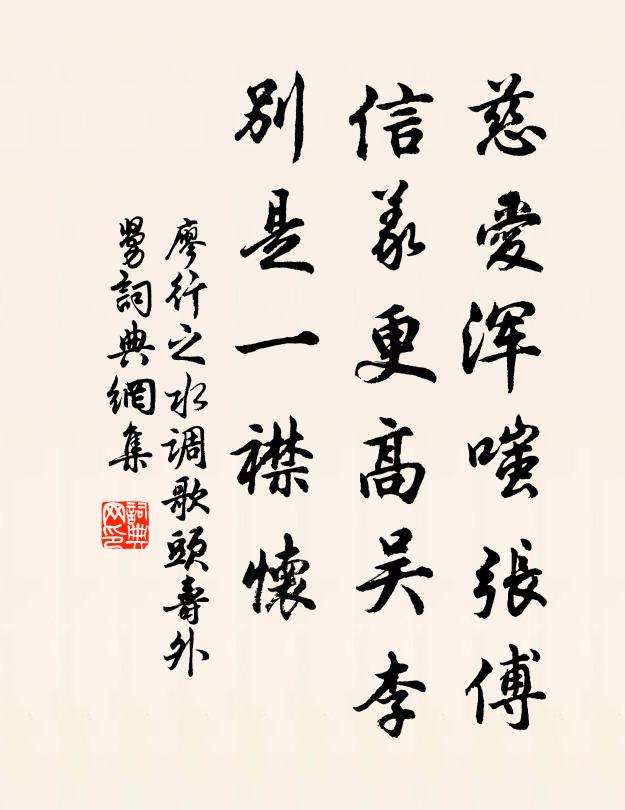 慈愛浑嗤張傅
信義更高吴李
別是一襟懷
廖行之水调歌頭壽外
舅詞典網集
詞典
网印